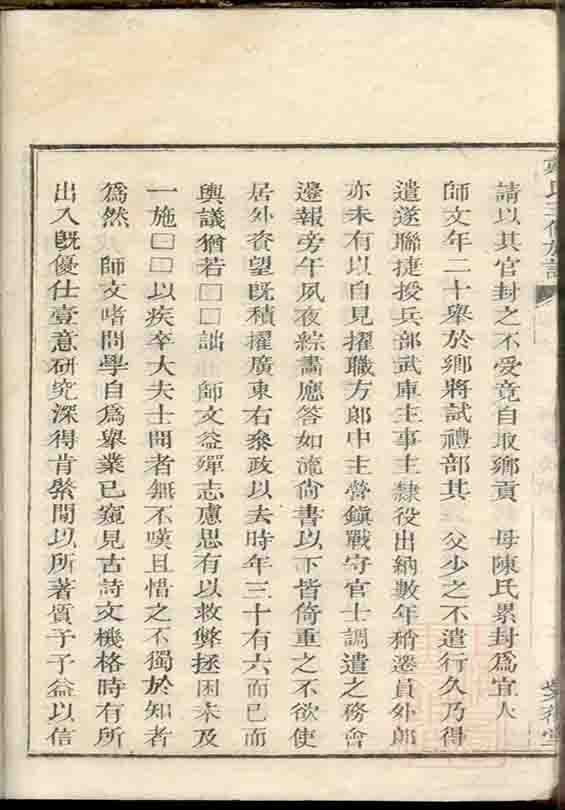 請以其官封之不受竟自取鄉貢　母陳氏累封爲宜人
師文年二十舉於鄉將試禮部其　父少之不遣行久乃得
遣遂聯捷授兵部武庫主事主隸役出納數年稍遷員外郎
亦未有以自見擢職方郎中主營鎮戰守官士調遣之務會
邊報旁午夙夜綜畫應答如流尙書以下皆倚重之不欲使
居外資望既積擢廣東右叅政以去時年三十有六而已而
輿議猶若□□詘　師文益殫志慮思有以救弊拯困未及
一施□□以疾卒大夫士聞者無不嘆且惜之不獨於知者
爲然　師文嗜問學自爲舉業已窺見古詩文機格時有所
出入旣優仕壹意研究深得肯綮間以所著質予予益以信